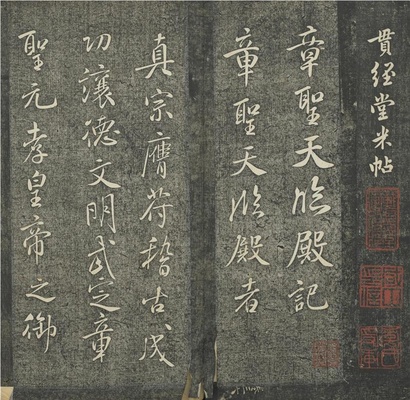 貫經堂米帖
章聖天臨殿記
章聖天臨殿者
真宗膺荷稽古成
功讓德文明武定章
聖元孝皇帝之御